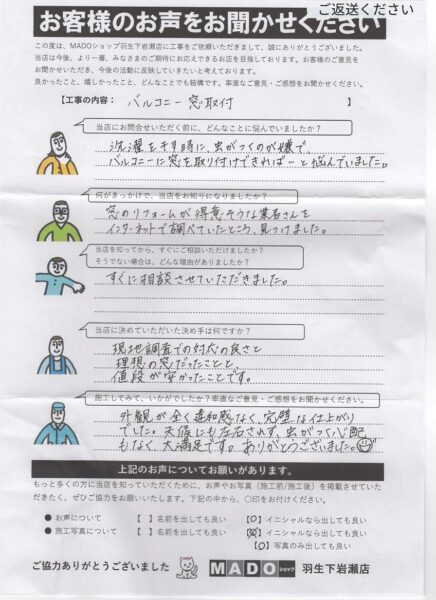 ご返送ください
お客様のお声をお聞かせください
この度は、MADOショップ羽生下岩瀬店に工事をご依頼いただきまして、誠にありがとうございました。
当店は今後、より一層、みなさまのご期待にお応えできるお店を目指しております。お客様のご意見を
お聞かせいただき、今後の活動に反映していきたいと考えております。
良かったこと、嬉しかったこと、どんなことでも結構です。率直なご意見・ご感想をお聞かせください。
【工事の内容: バルコニー窓取付 】
当店にお問合せいただく前に、どんなことに悩んでいましたか?
洗濯を干す時に、虫がつくのが嫌で、
バルコニーに窓を取り付けできればーと悩んでいました。
何がきっかけで、当店をお知りになりましたか?
窓のリフォームが得意そうな業者さんを
インターネットで調べていたところ、見つけました。
当店を知ってから、すぐにご相談いただけましたか?
そうでない場合は、どんな理由がありましたか?
すぐに相談させていただきました。
当店に決めていただいた決め手は何ですか?
現地調査での対応の良さと
理想の窓だったことと、
値段が安かったことです。
施工してみて、いかがでしたか?率直なご意見・ご感想をお聞かせください
外観が全く違和感なく、完璧な仕上がり
でした。天候にも左右されず、虫がつく心配
もなく、大満足です。ありがとうございました。
上記のお声についてお願いがあります。
もっと多くの方に当店を知っていただくために、お声やお写真(施工前/施工後)を掲載させていた
だきたく、ぜひご協力をお願いいたします。下記の中から、〇印をお付けください。
● お声について 【 】名前を出しても良い 【〇】イニシャルなら出しても良い
● 施工写真について 【 】名前を出しても良い 【〇】イニシャルなら出しても良い
【〇】写真のみ出しても良い
ご協力ありがとうございました MADOショップ 羽生下岩瀬店